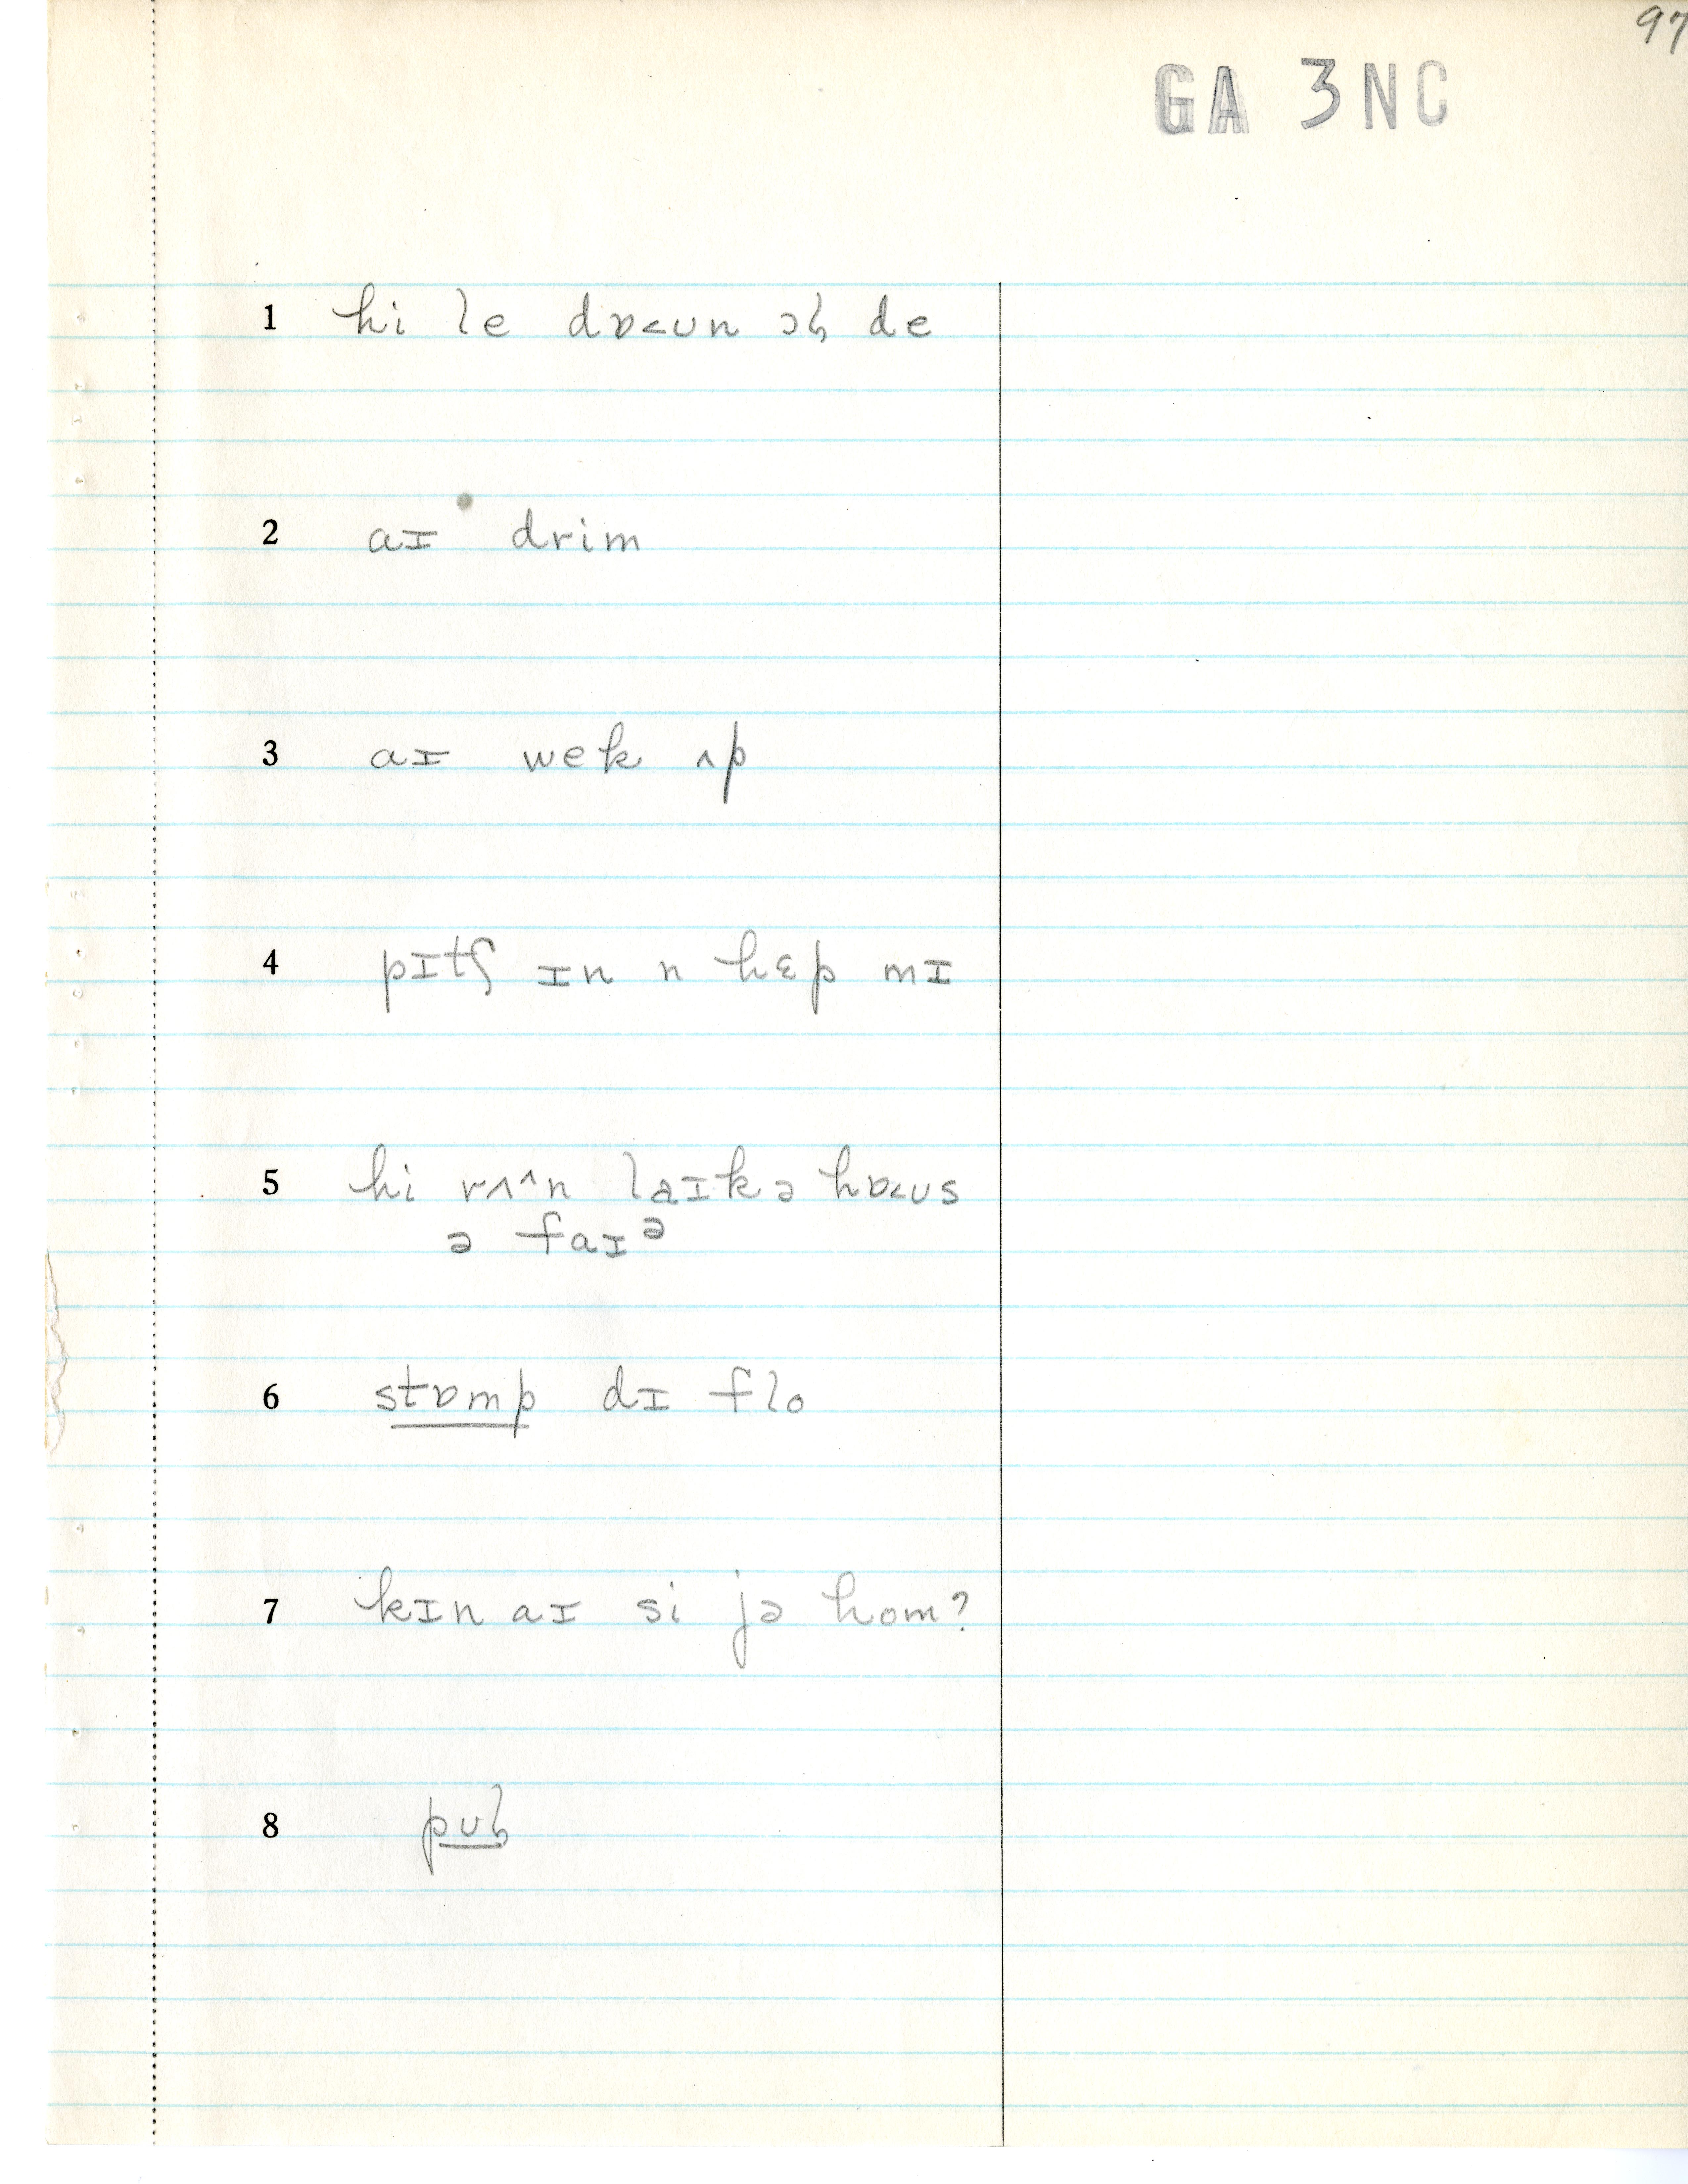 97
GA 3NC
1 hi le dɒ<ʊn ɔɫ de
2 aɪ drim
3 aɪ wek ʌp
4 pɪtʃ ɪn n hɛp mɪ
5 hi rʌ^n laɪk ə hɒ<ʊs
ə faɪᵊ
6 stɒmp dɪ flo
7 kɪn aɪ si jə hom?
8 pʊɫ